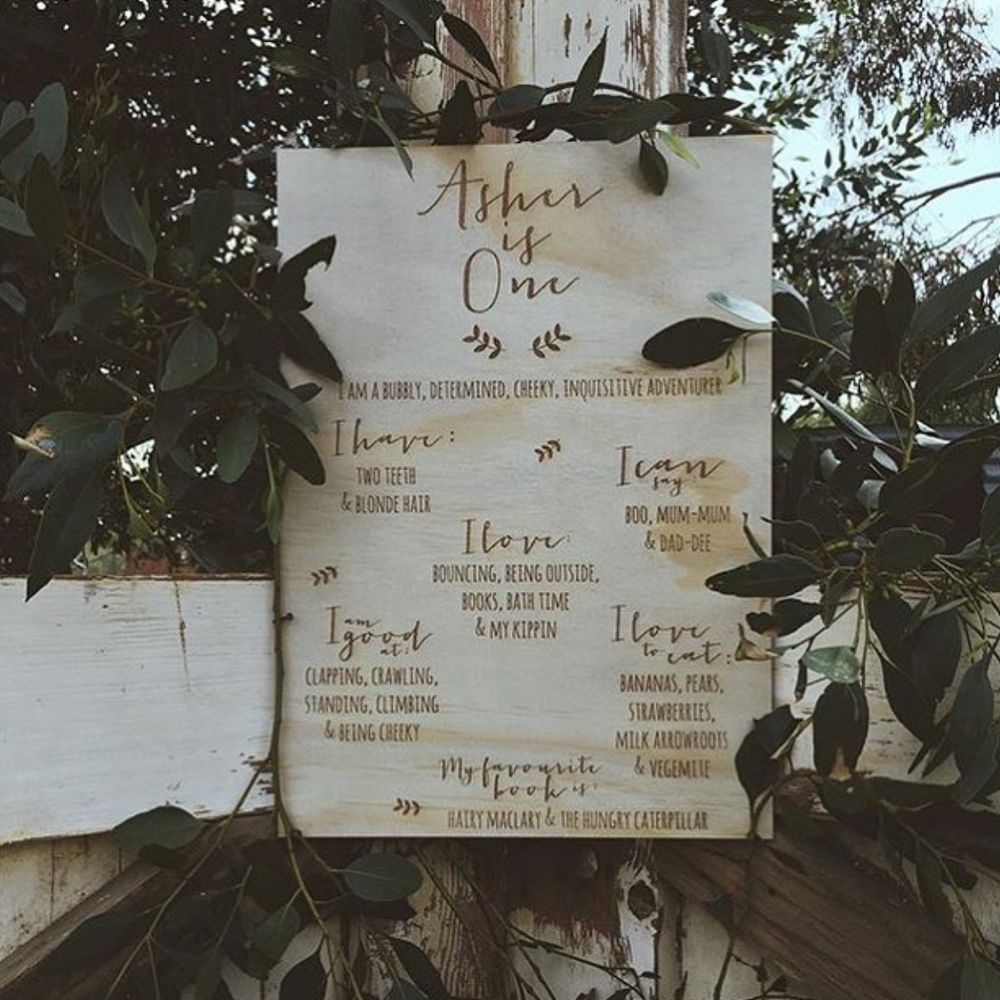 Asher
is
One
I AM A BUBBLY, DETERMINED, CHEEKY, INQUISITIVE ADVENTURER
I have:
TWO TEETH
& BLONDE HAIR
I can
say:
BOO, MUM-MUM
& DAD-DEE
I love:
BOUNCING, BEING OUTSIDE,
BOOKS, BATH TIME
& MY KIPPIN
I am
good
at:
CLAPPING, CRAWLING,
STANDING, CLIMBING
& BEING CHEEKY
I love
to eat:
BANANAS, PEARS,
STRAWBERRIES,
MILK ARROWROOTS
& VEGEMITE
My favourite
book is:
HAIRY MACLARY & THE HUNGRY CATERPILLAR